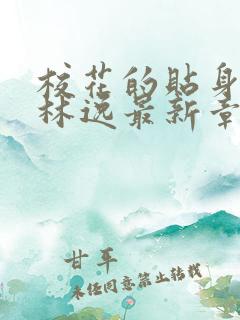 校花的贴身
林逸最新章
甘平
未经同意禁止转载